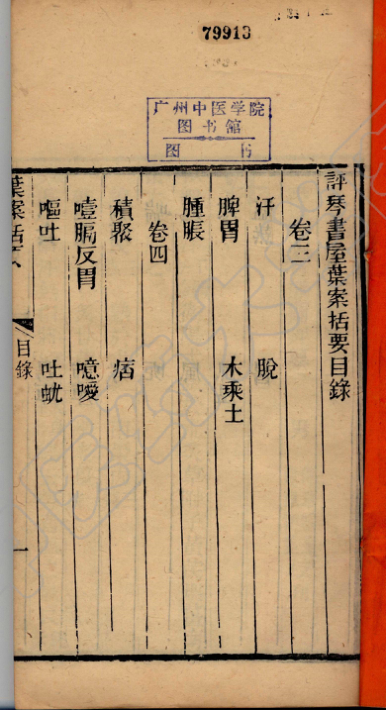 79913
广州中医学院
图书馆
图 书
評琴書屋葉案括要目錄
卷三
汗 脫
脾胃 木乘土
腫脹
卷四
積聚 痞
噎膈反胃 噫噯
嘔吐 吐蚘
葉案括
目錄
一